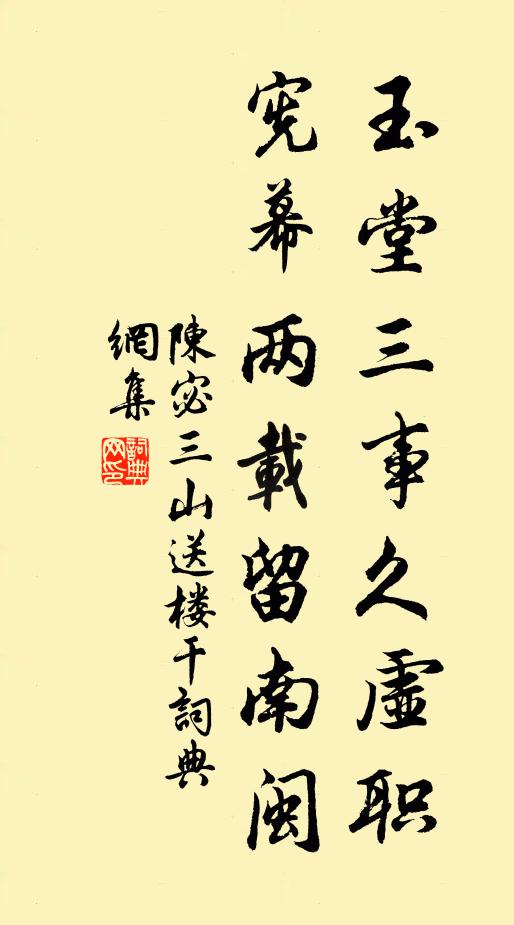 玉堂三事久虚职
宪幕两載留南闽
陳宓三山送楼干詞典
網集
詞典網印